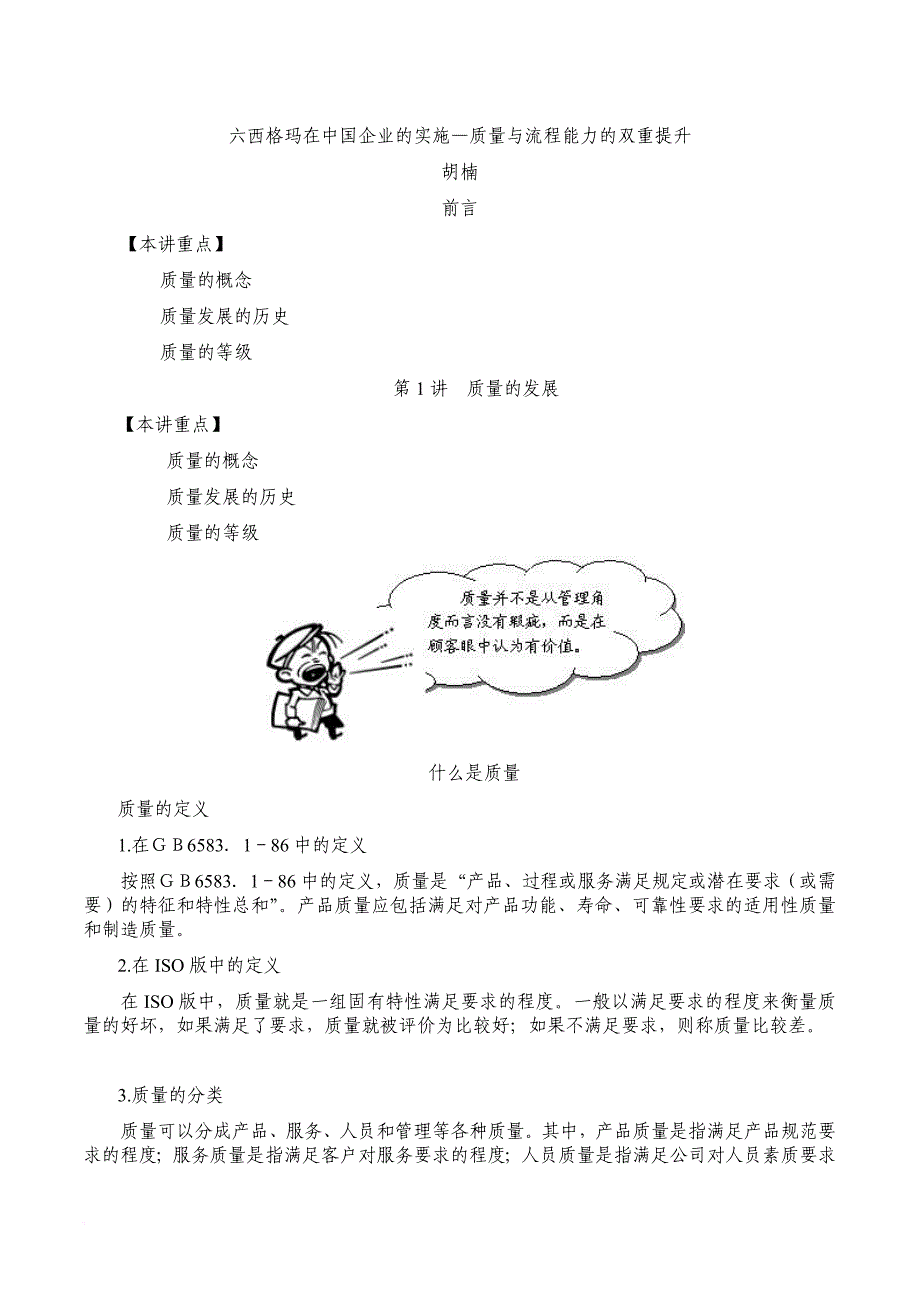 六西格玛在中国企业的实施—质量与流程能力的双重提升
胡楠
前言
【本讲重点】
质量的概念
质量发展的历史
质量的等级
第1讲　质量的发展
【本讲重点】
质量的概念
质量发展的历史
质量的等级
质量并不是从管理角
度而言没有瑕疵，而是在
顾客眼中认为有价值。
什么是质量
质量的定义
1.在ＧＢ6583．1－86 中的定义
按照ＧＢ6583．1－86 中的定义，质量是“产品、过程或服务满足规定或潜在要求（或需
要）的特征和特性总和”。产品质量应包括满足对产品功能、寿命、可靠性要求的适用性质量
和制造质量。
2.在 ISO 版中的定义
在 ISO 版中，质量就是一组固有特性满足要求的程度。一般以满足要求的程度来衡量质
量的好坏，如果满足了要求，质量就被评价为比较好；如果不满足要求，则称质量比较差。
3.质量的分类
质量可以分成产品、服务、人员和管理等各种质量。其中，产品质量是指满足产品规范要
求的程度；服务质量是指满足客户对服务要求的程度；人员质量是指满足公司对人员素质要求